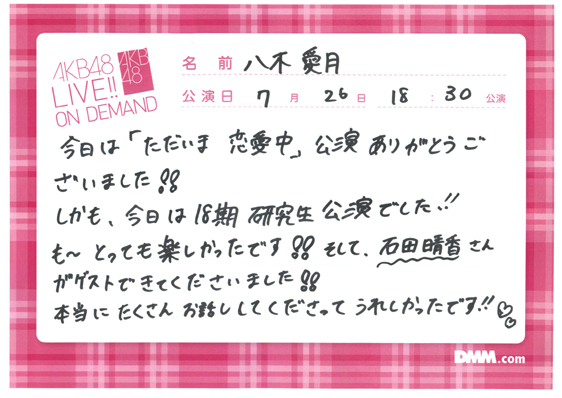 AKB48
LIVE!!
ON DEMAND
AKB
48
名 前 八木 愛月
公演日 7 月 26 日 18 : 30 公演
今日は「ただいま 恋愛中」公演 ありがとうご
ざいました!!
しかも、今日は 18期 研究生 公演でした!!
も〜 とっても楽しかったです!! そして、石田晴香さん
がゲストできてくださいました!!
本当に たくさん お話ししてくださって うれしかったです!!
DMM.com